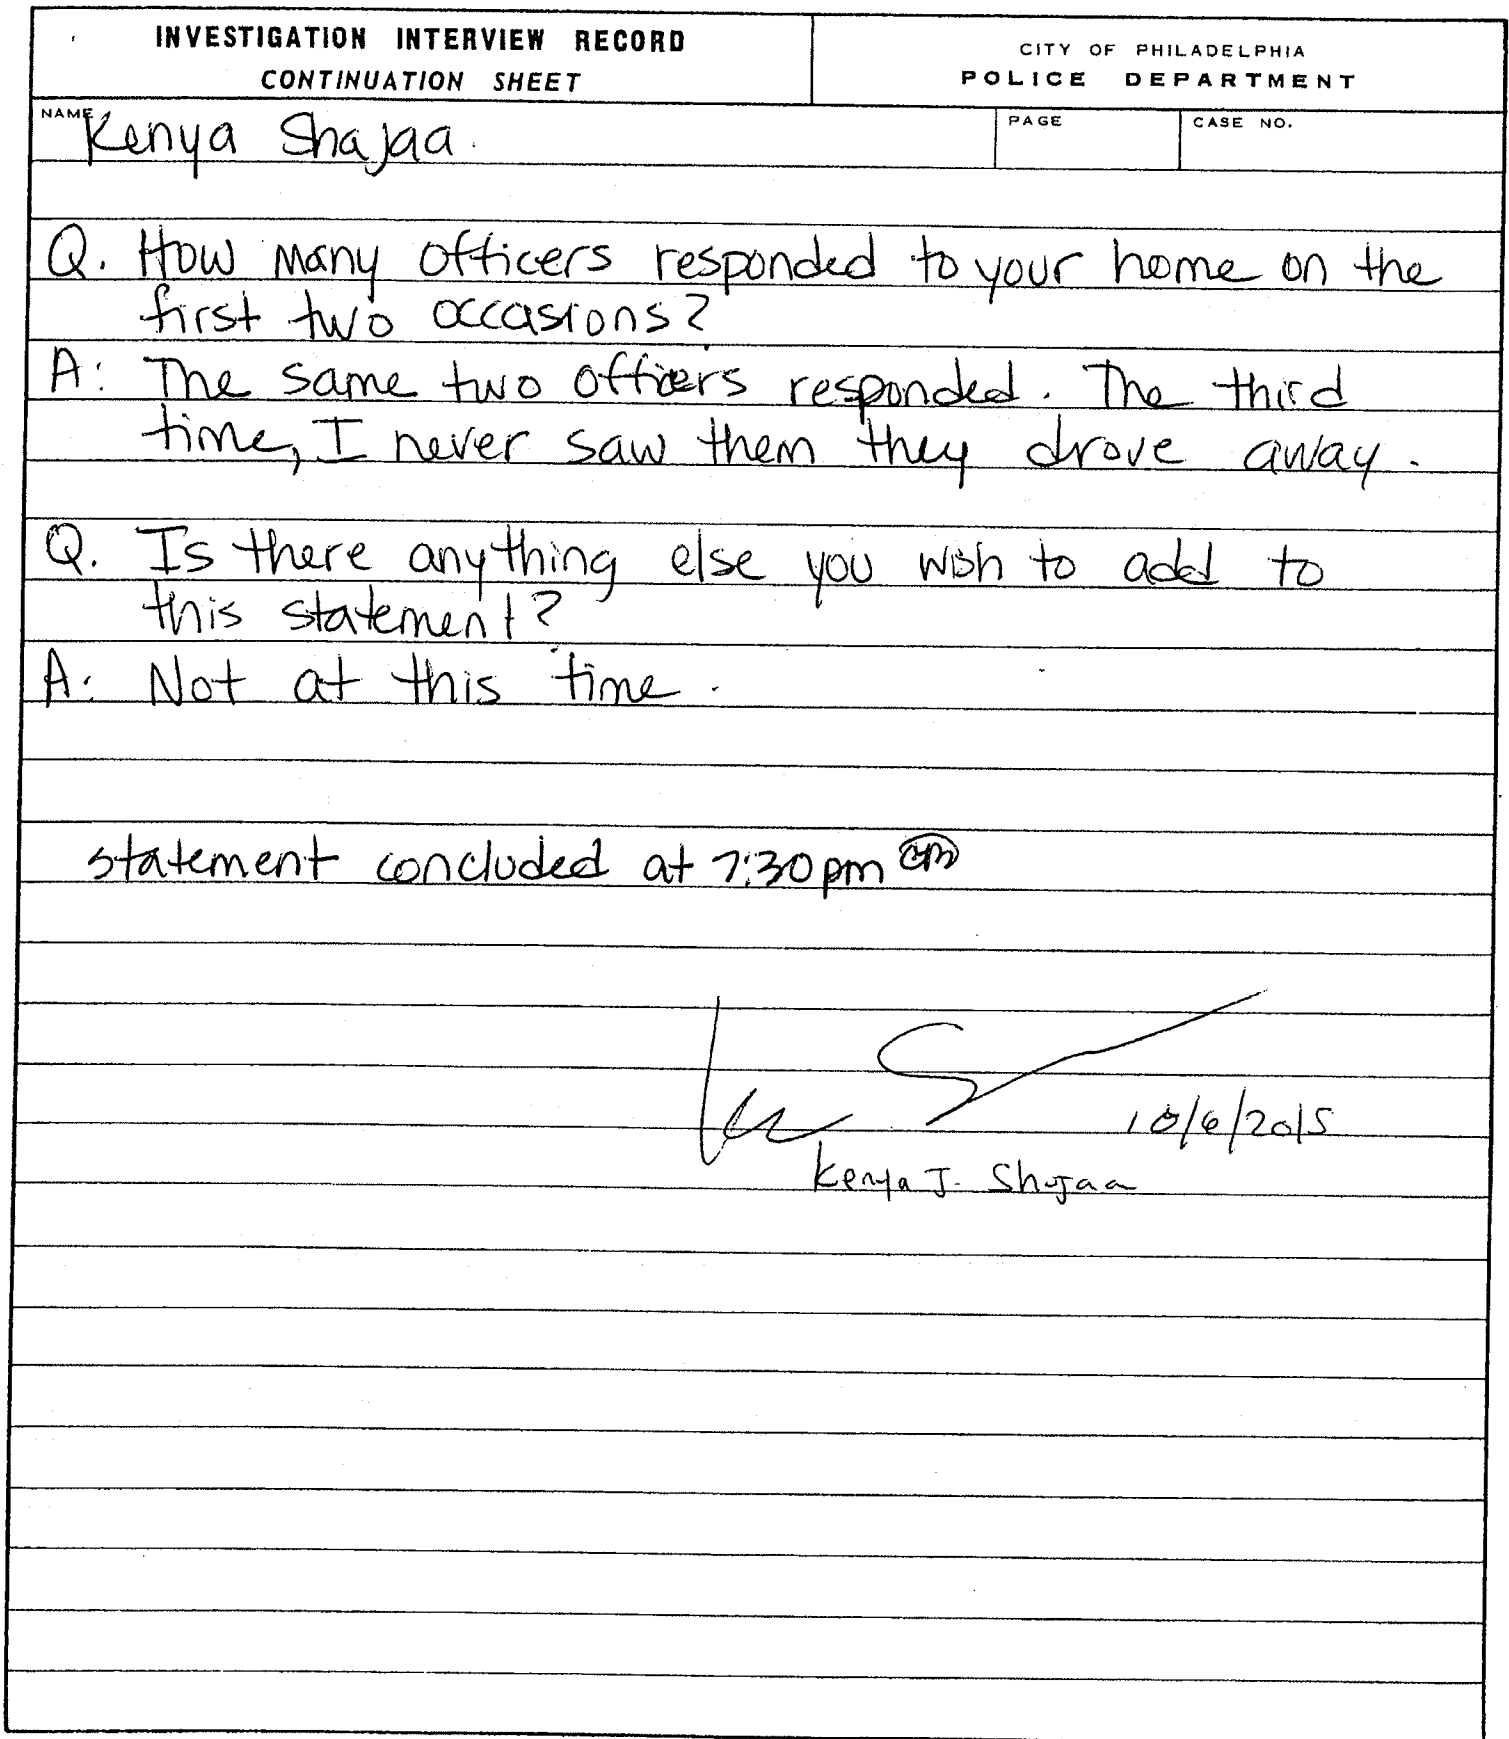 INVESTIGATION INTERVIEW RECORD
CONTINUATION SHEET
CITY OF PHILADELPHIA
POLICE DEPARTMENT
NAME
Kenya Shajaa
PAGE
CASE NO.
Q. How many officers responded to your home on the
first two occasions?
A: The same two officers responded. The third
time, I never saw them they drove away.
Q. Is there anything else you wish to add to
this statement?
A: Not at this time.
statement concluded at 7:30pm
10/6/2015
Kenya J. Shujaa